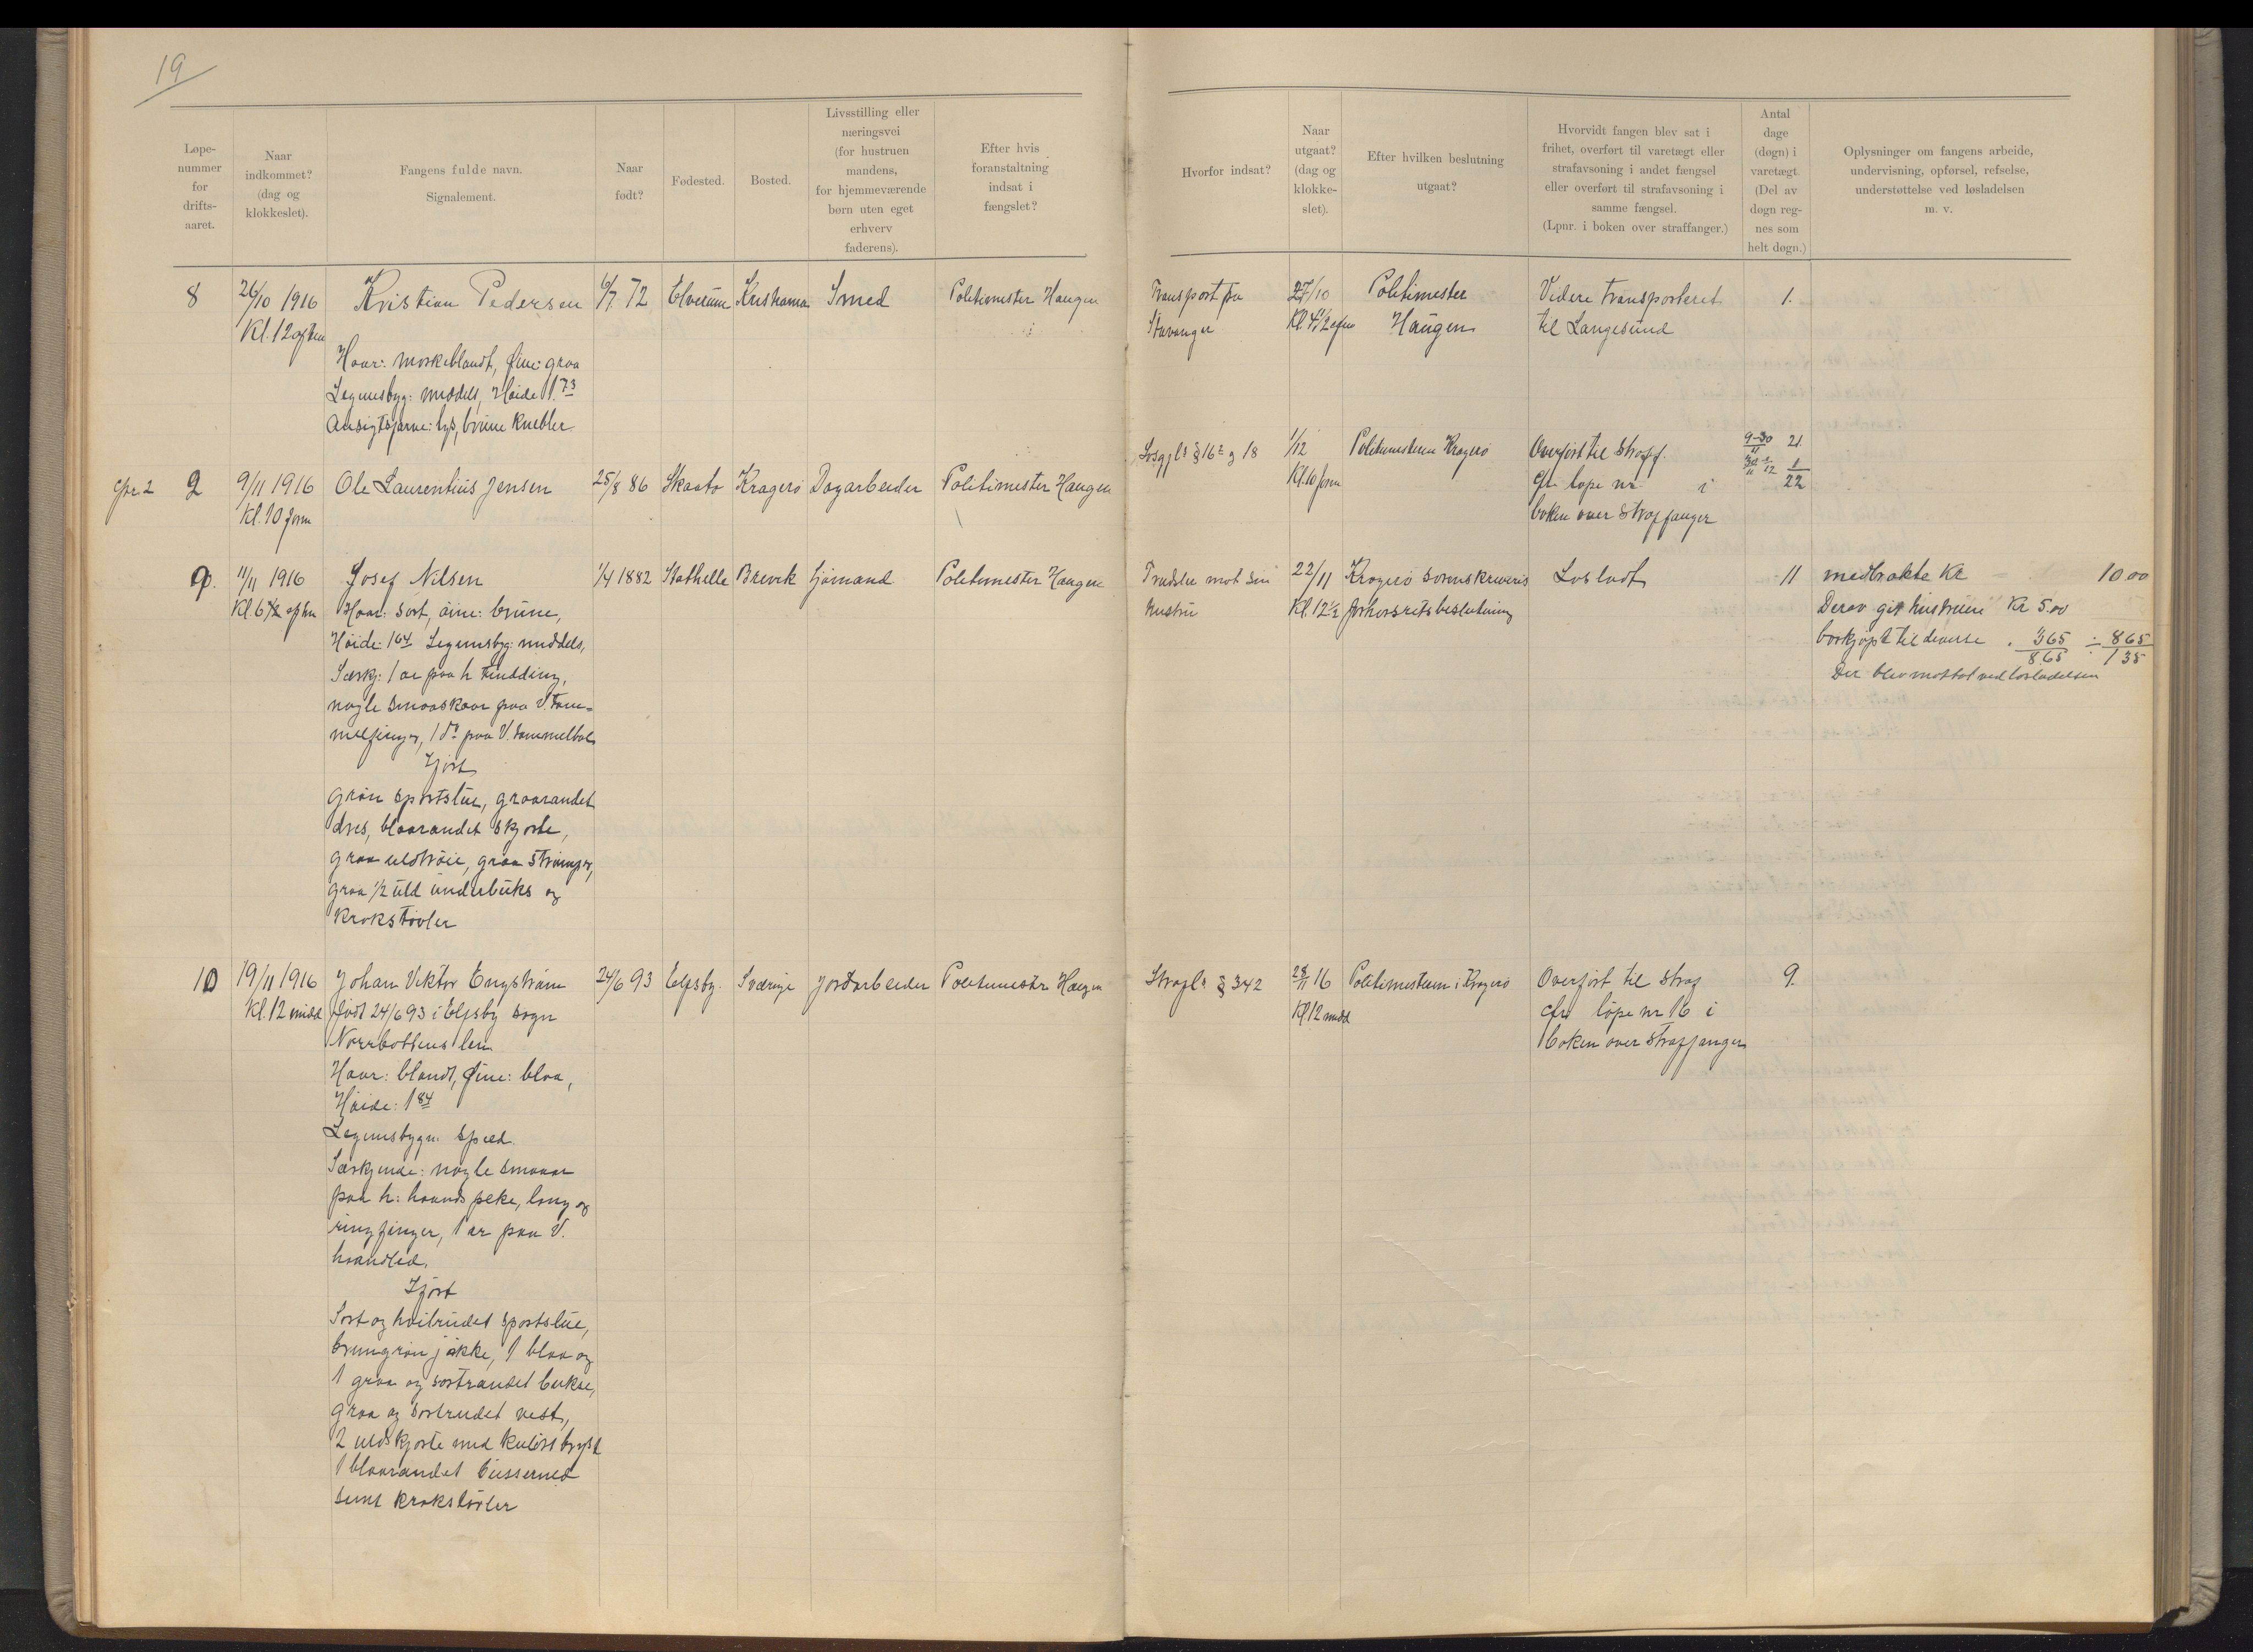 19
Løpe-
nummer
for
drifts-
aaret.
Naar
indkommet?
(dag og
klokkeslet).
Fangens fulde navn.
Signalement.
Naar
født?
Fødested.
Bosted.
Livsstilling eller
næringsvei
(for hustruen
mandens,
for hjemmeværende
børn uten eget
erhverv
faderens).
Efter hvis
foranstaltning
indsat i
fængslet?
Hvorfor indsat?
Naar
utgaat?
(dag og
klokke-
slet).
Efter hvilken beslutning
utgaat?
Hvorvidt fangen blev sat i
frihet, overført til varetægt eller
strafavsoning i andet fængsel
eller overført til strafavsoning i
samme fængsel.
(Lpnr. i boken over straffanger.)
Antal
dage
(døgn) i
varetægt.
(Del av
døgn reg-
nes som
helt døgn.)
Oplysninger om fangens arbeide,
undervisning, opførsel, refselse,
understøttelse ved løsladelsen
m. v.
8
26/10 1916
Kl. 12 aften
Kristian Pedersen
Haar: mørkeblandt, Øine: graa
Legemsbyg: middels, Høide 1.73
Ansigtsfarve: lys, brune knebler.
6/7 72
Elverum
Kristiania
Smed
Politimester Haugen
Transport fra
Stavanger
27/10
Kl. 4 1/2 efm
Politimester
Haugen
Videre transporteret
til Langesund
1.
cfr 2
9
9/11 1916
Kl. 10 form
Ole Laurentius Jensen
25/8 86
Skaatø
Kragerø
Dagarbeider
Politimester Haugen
Løsgjl. § 16 og 18
1/12
Kl. 10 form
Politimesteren Kragerø
Overført til Straff.
cfr. løpe nr. i
boken over Straffanger
9-30/11 21
30/11-1/12 1
22
9.
11/11 1916
Kl. 6 1/2 eftm
Josef Nilsen
Haar: sort, øine: brune,
Høide: 164 Legemsbyg: middels,
Særkj: 1 ar paa h tindding,
nogle smaaskaar paa V. tom-
melfinger, 1 do paa V. tommelbal
Iført
grøn sportslue, graarandet
dres, blaarandet skjorte,
graa uldtrøie, graa strømper,
graa 1/2 uld underbuks og
krokstøvler
1/4 1882
Stathelle
Brevik
Sjømand
Politimester Haugen
Trudsler mot sin
hustru
22/11
Kl. 12 1/2
Kragerø sorenskriveris
forhørsretsbeslutning
Løsladt
11
medbrakte Kr 10.00
Derav git hustruen Kr 5.00
bortkjøpt til diverse " 3.65 ÷ 8.65
8.65 1 35
Der blev mottat ved løsladelsen
10
19/11 1916
Kl. 12 midd
Johan Viktor Engstrøm
født 24/6 93 i Elfsby sogn
Norrbottens len
Haar: blondt, Øine: blaa,
Høide: 1 84
Legemsbygn: spæd.
Særkjende: nogle smaaar
paa h: haands peke, lang og
ringfinger, 1 ar paa V.
haandled.
Iført
Sort og hvitrudet sportslue,
brungrøn jakke, 1 blaa og
1 graa og sortrandet bukse,
graa og sortrudet vest,
2 uldskjorte med kulørt bryst
1 blaarandet busserned
samt krokstøvler
24/6 93
Elfsby.
Sverige
Jordarbeider
Politimester Haugen
Strafl. § 342
28/11 16
Kl 12 midd
Politimesteren i Kragerø
Overført til straf
cfr løpe nr 16 i
boken over Straffanger
9.